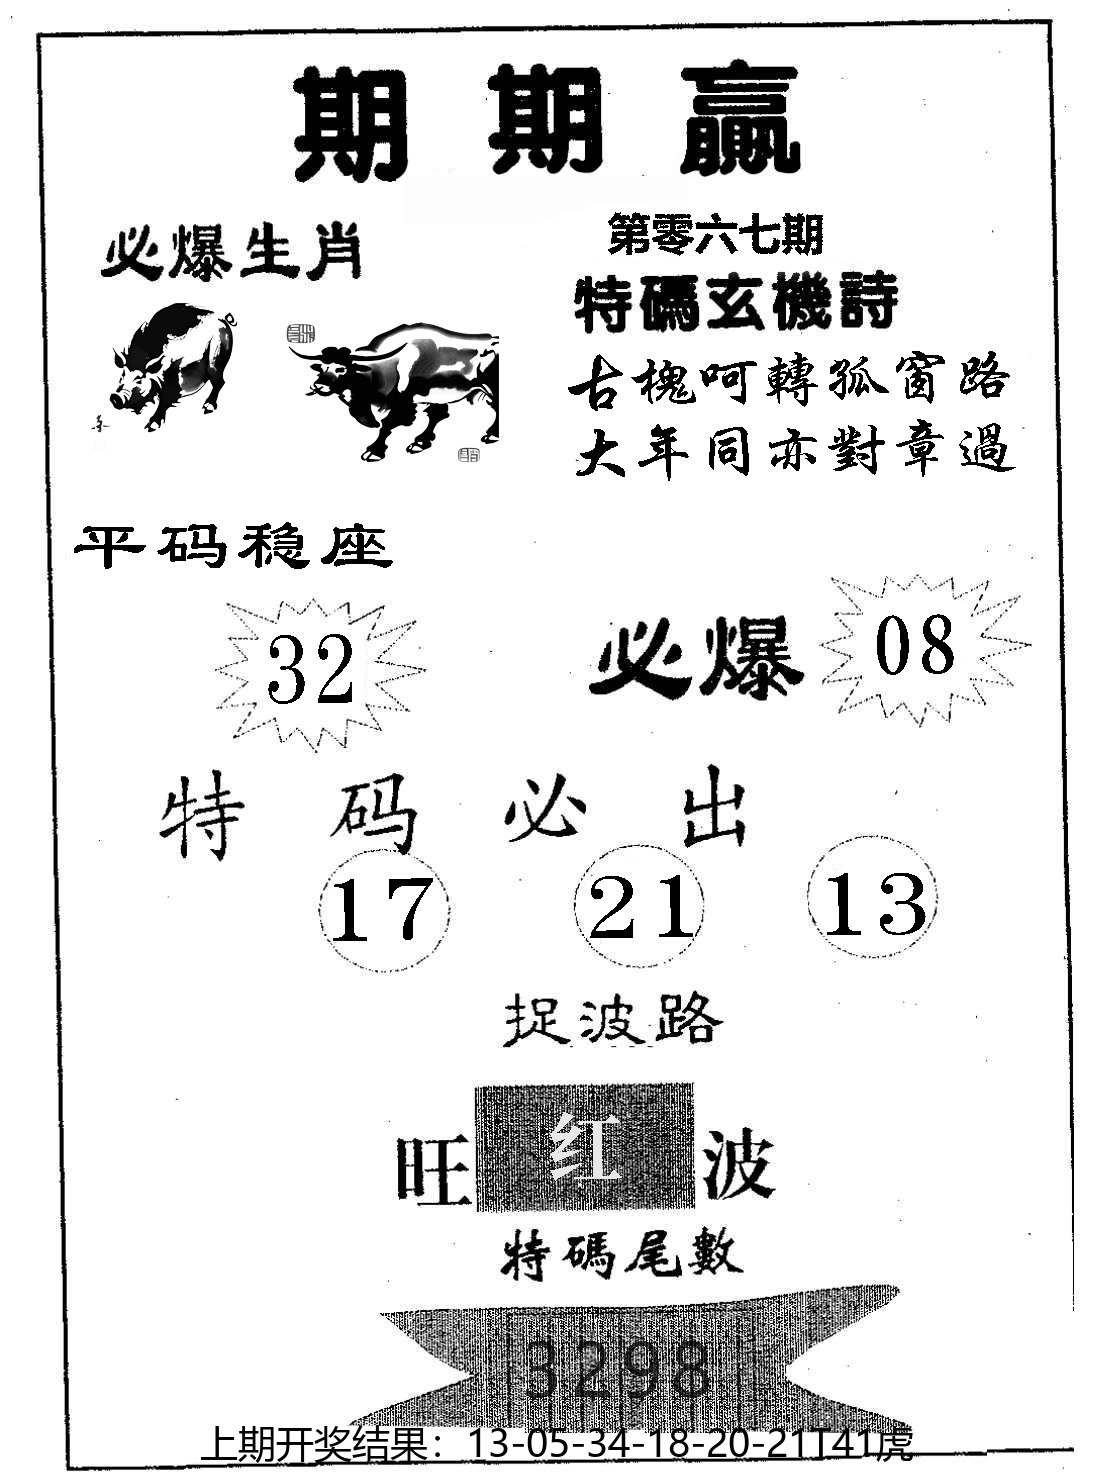 期期贏
必爆生肖
第零六七期
特碼玄機詩
古槐呵轉孤窗路
大年同亦對章過
平码稳座
32
必爆 08
特码必出
17 21 13
捉波路
旺红波
特碼尾數
3298
上期开奖结果：13-05-34-18-20-21T41虎